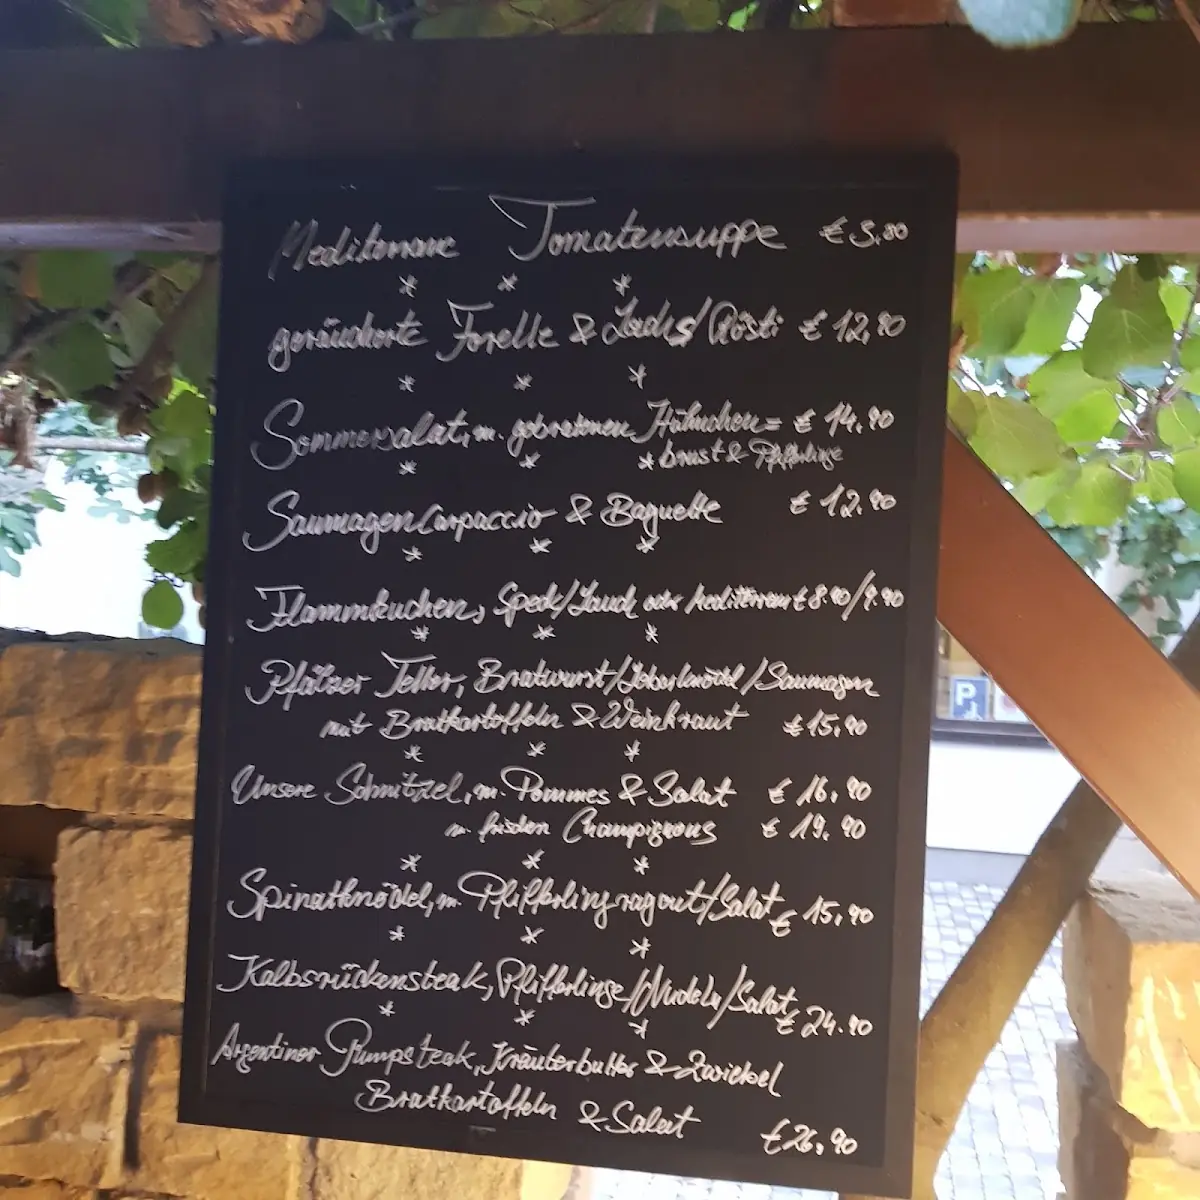 Mediterrane Tomatensuppe € 5,80
* * *
geräucherte Forelle & Lachs/Rösti € 12,90
* * *
Sommersalat, m. gebratenen Hühnchen= € 14,90
* * * brust & Pfifferlinge
Saumagencarpaccio & Baguette € 12,90
* * *
Flammkuchen, Speck/Lauch oder mediterran € 8.90/9.90
* * *
Pfälzer Teller, Bratwurst/Leberknödel/Saumagen
mit Bratkartoffeln & Weinkraut € 15,90
* * *
Unsere Schnitzel, m. Pommes & Salat € 16,90
m. frischen Champignons € 19,90
* * *
Spinatknödel, m. Pfifferlingragout/Salat € 15,90
* * *
Kalbsrückensteak, Pfifferlinge/Nudeln/Salat € 24.90
* * *
Argentiner Rumpsteak, Kräuterbutter & Zwiebel
Bratkartoffeln & Salat
€ 26,90
P